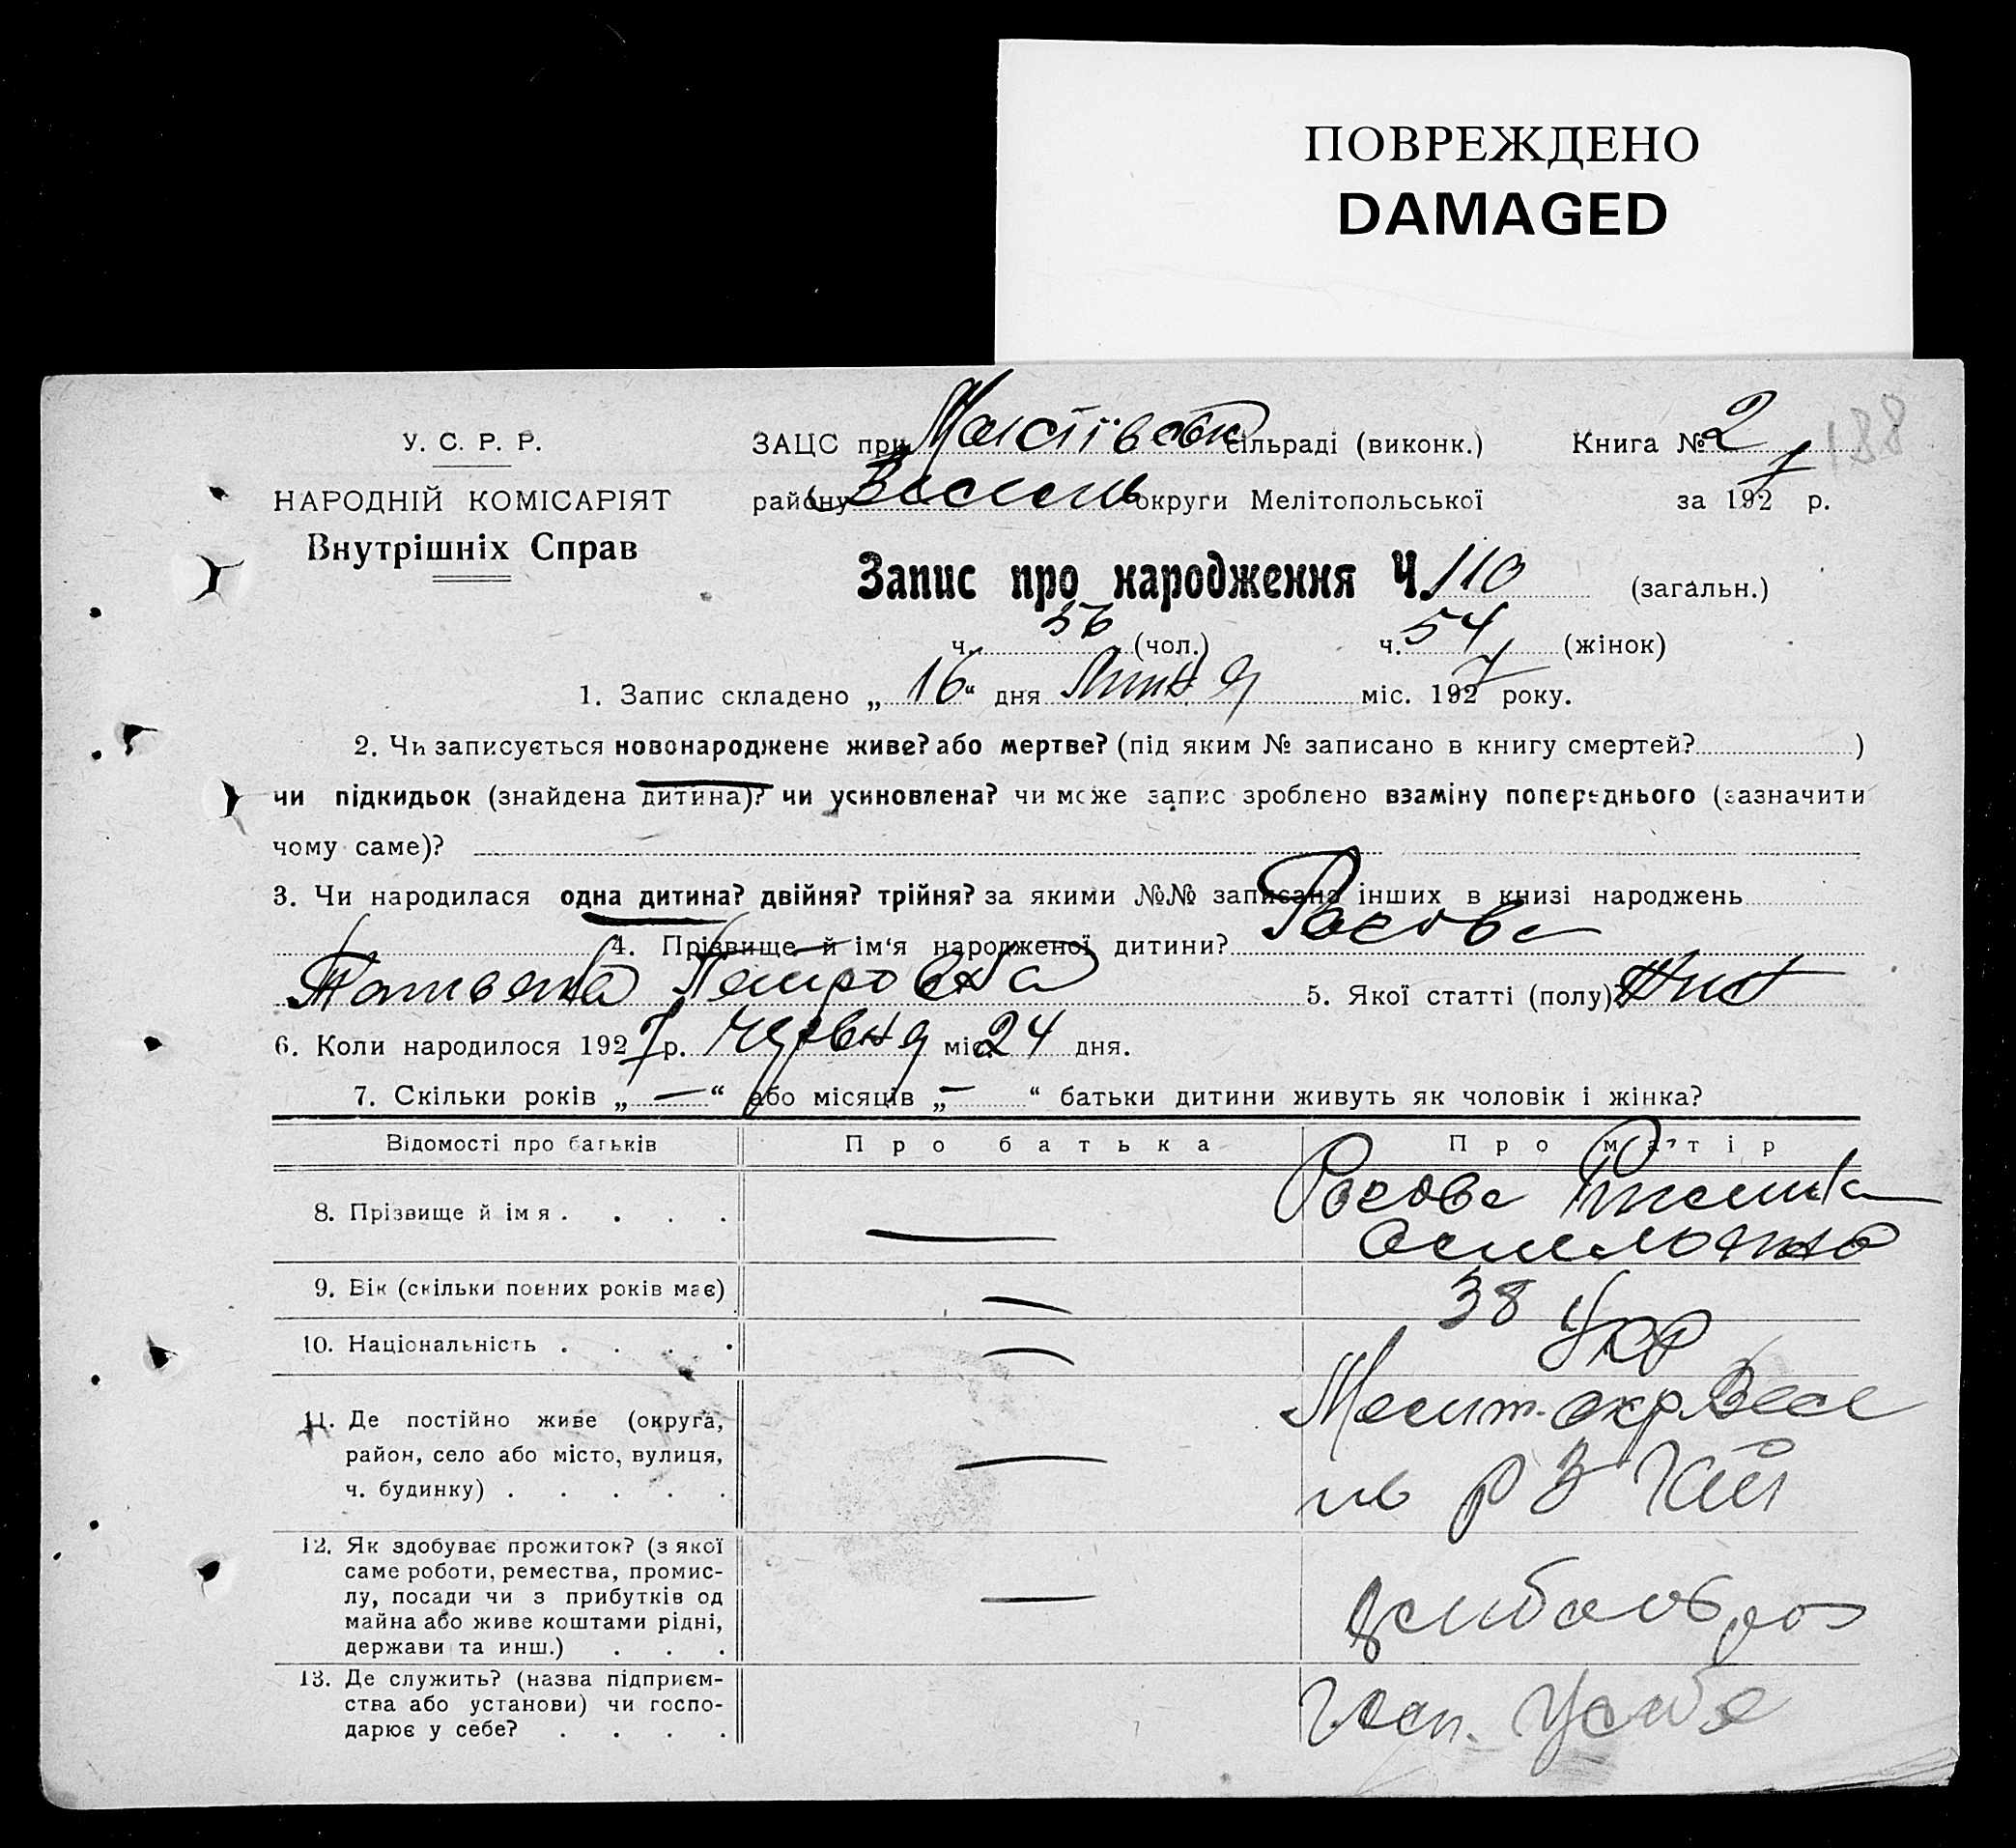 ПОВРЕЖДЕНО
DAMAGED
У. С. Р. Р.
НАРОДНІЙ КОМІСАРІЯТ
Внутрішніх Справ
ЗАЦС при сільраді (виконк.)
району округи Мелітопольської
Книга № 2
188
за 1927 р.
Запис про народження Ч. 110 (загальн.)
ч. 56 (чол.) ч. 54 (жінок)
1. Запис складено „ 16 “ дня Липня міс. 1927 року.
2. Чи записується новонароджене живе? або мертве? (під яким № записано в книгу смертей? )
чи підкидьок (знайдена дитина)? чи усиновлена? чи може запис зроблено взаміну попереднього (зазначити
чому саме)?
3. Чи народилася одна дитина? двійня? трійня? за якими №№ записано інших в книзі народжень
4. Прізвище й ім‘я народженої дитини?
Петровна 5. Якої статті (полу)?
6. Коли народилося 1927 р. червня міс. 24 дня.
7. Скільки років „ — “ або місяців „ — “ батьки дитини живуть як чоловік і жінка?
Відомості про батьків Про батька Про матір
8. Прізвище й імя . . . . —
9. Вік (скільки повних років має) — 38
10. Національність . . . . — Укр
11. Де постійно живе (округа, район, село або місто, вулиця, ч. будинку) . . . . . — Мелит. окр. Весе
12. Як здобуває прожиток? (з якої саме роботи, ремества, промислу, посади чи з прибутків од майна або живе коштами рідні, держави та инш.) . . . —
13. Де служить? (назва підприємства або установи) чи господарює у себе? . . . .